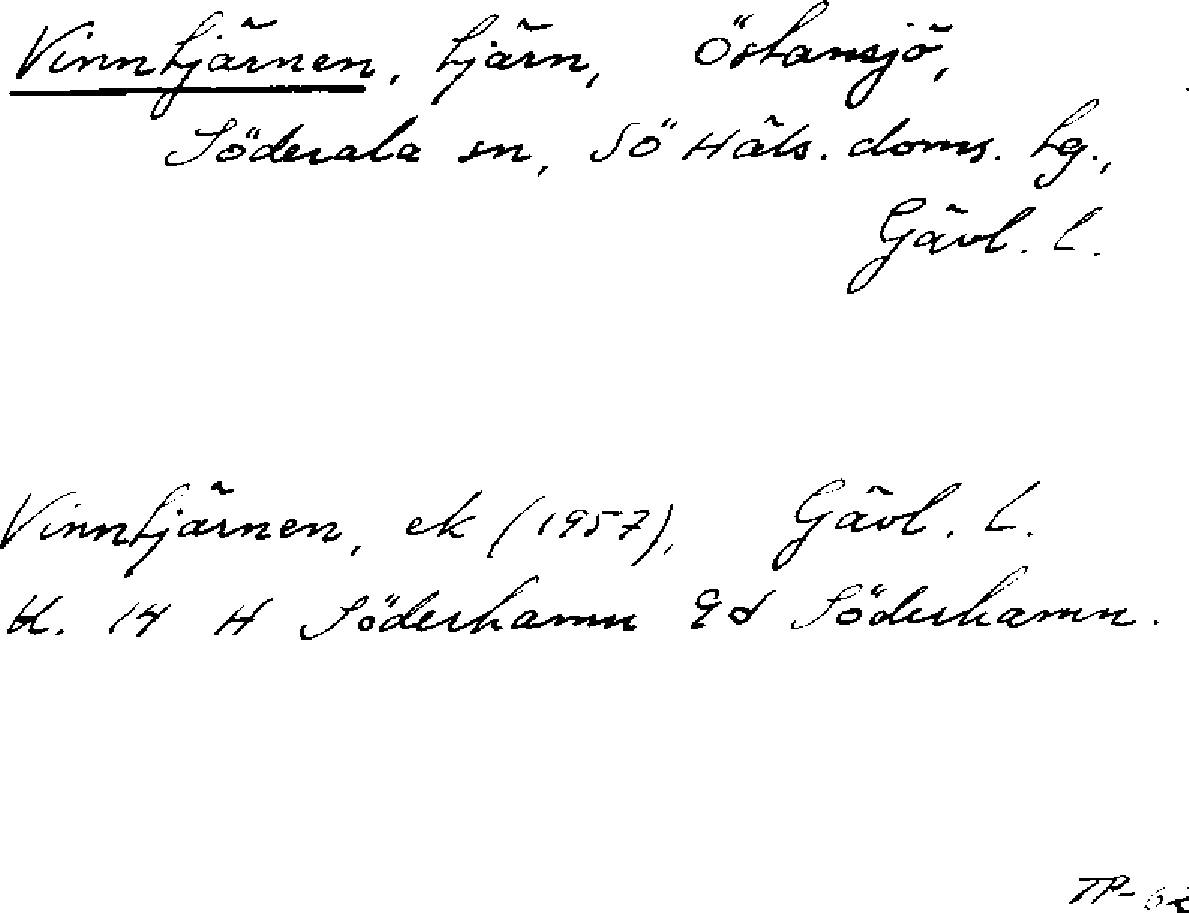 Vinntjärnen, tjärn, Östansjö,
Söderala sn, Sö Häls. doms. tg.,
Gävl. l.
Vinntjärnen, ek (1957), Gävl. L.
bl. 14 H Söderhamn 9d Söderhamn.
TP-